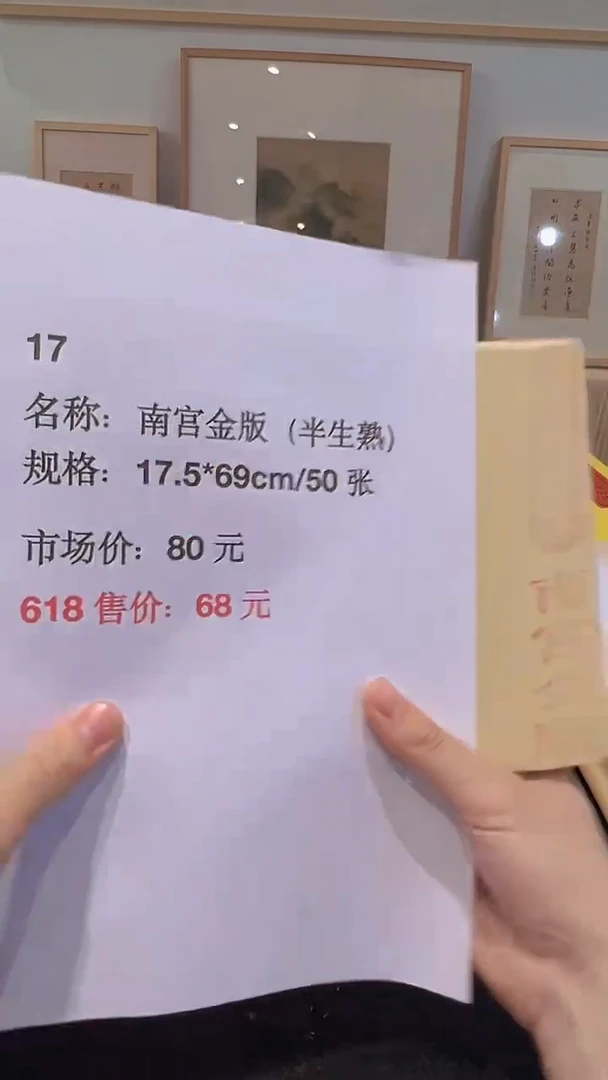 17
名称：南宫金版（半生熟）
规格：17.5*69cm/50 张
市场价：80 元
618 售价：68 元